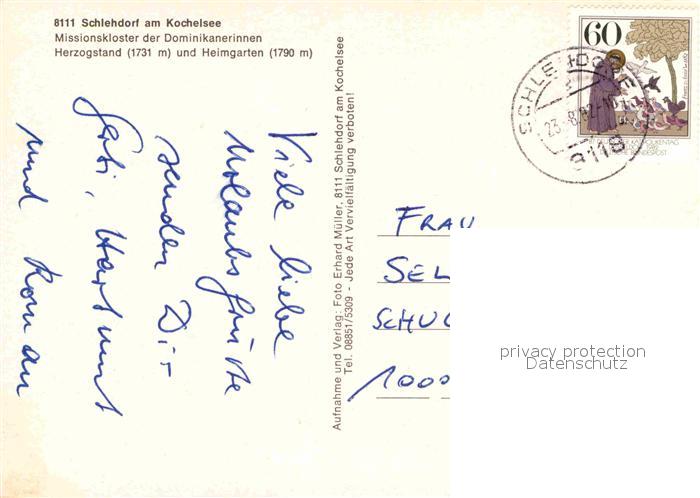 8111 Schlehdorf am Kochelsee
Missionskloster der Dominikanerinnen
Herzogstand (1731 m) und Heimgarten (1790 m)
Viele liebe
Urlaubsgrüße
senden Dir
Gabi, Hartmut
und Roman
Aufnahme und Verlag: Foto Erhard Müller, 8111 Schlehdorf am Kochelsee
Tel. 08851/5309 - Jede Art Vervielfältigung verboten!
60
SCHLEHDORF
23.-8.82
8119
FRAU
SEL
SCHU
1000
privacy protection
Datenschutz